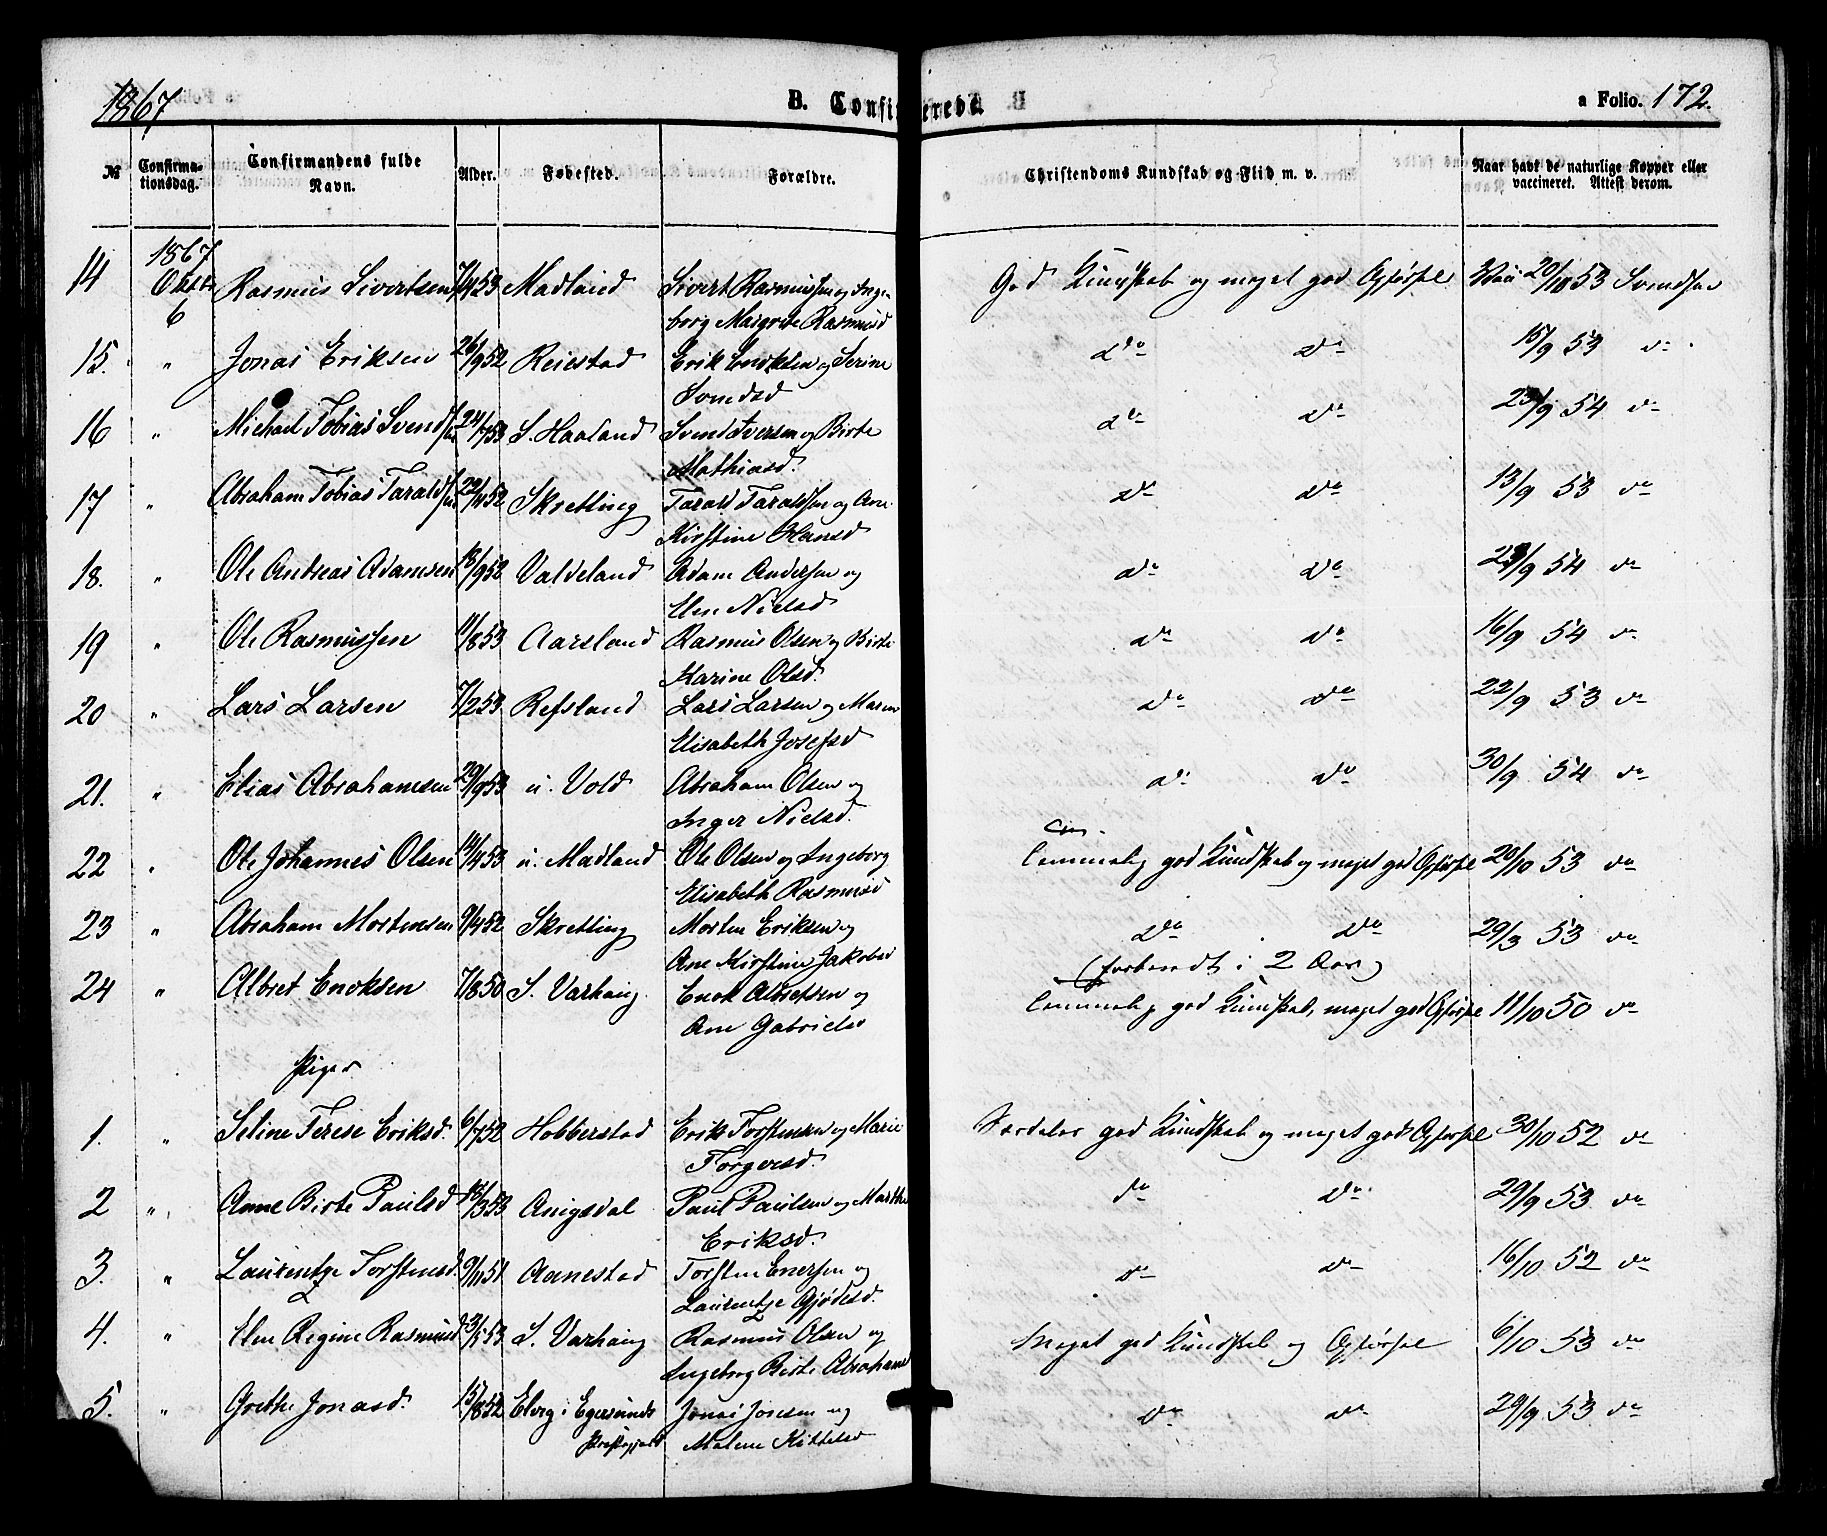 1867 B. Confirmerede. a Folio. 172.
№ Confirmationsdag. Confirmandens fulde Navn. Alder. Fødested. Forældre. Christendoms Kundskab og Flid m. v. Naar havt de naturlige Kopper eller vaccineret. Attest derom.
14 1867 Octbr 6 Rasmus Sivertsen 7/4 53 Madland Sivert Rasmussen og Inge- God Kundskab og meget god Opførsel Vac 20/10 53 Svendsen
borg Margrete Rasmusd
15. " Jonas Eriksen 26/9 52 Reiestad Erik Enoksen og Serine do do 15/9 53 do
Svendsd
16 " Michael Tobias Svendsen 24/7 53 S. Haaland Svend Iversen og Birte do do 23/9 54 do
Mathiasd.
17 " Abraham Tobias Taraldsen 22/11 52 Skretting Tarald Taraldsen og Ane do do 13/9 53 do
Kirstine Hansd
18. " Ole Andreas Adamsen 18/9 52 Valdeland Adam Andersen og do do 23/9 54 do
Elen Nielsd
19 " Ole Rasmussen 11/8 53 Aarsland Rasmus Olsen og Birte do do 16/9 54 do
Karine Olsd.
20 " Lars Larsen 7/2 53 Refsland Lars Larsen og Maren do do 22/9 53 do
Elisabeth Josefsd
21. " Elias Abrahamsen 29/9 53 u. Vold Abraham Olsen og do do 30/9 54 do
Inger Nielsd.
22 " Ole Johannes Olsen 14/4 53 u. Madland Ole Olsen og Ingeborg Temmelig god Kundskab og meget god Opførsel 20/10 53 do
Elisabeth Rasmusd
23 " Abraham Mortensen 9/4 52 Skretting Morten Eriksen og do do 29/3 53 do
Ane Kirstine Jakobsd
24 " Albret Enoksen 7/8 50 S. Varhaug Enok Albretsen og (forberedt i 2 Aar) Temmelig god Kundskab, meget god Opførsel 11/10 50 do
Ane Gabrielsd
Piger
1. " Seline Terese Eriksd. 6/7 52 Hobberstad Erik Torstensen og Marie Særdeles god Kundskab og meget god Opførsel 30/10 52 do
Torgersd.
2 " Anne Birte Paulsd 18/3 53 Auigsdal Paul Paulsen og Marthe do do 29/9 53 do
Eriksd.
3. " Laurentze Torstensd 9/11 51 Aanestad Torsten Enersen og do do 16/10 52 do
Laurentze Gjødesd.
4. " Elen Regine Rasmusd 3/1 53 S. Varhaug Rasmus Olsen og Meget god Kundskab og Opførsel 6/10 53 do
Ingeborg Birte Abrahamsd
5. " Grethe Jonasd. 15/8 52 Elveg i Egersunds Jonas Jonesen og do do 29/9 53 do
Præstegjeld Malene Kittelsd